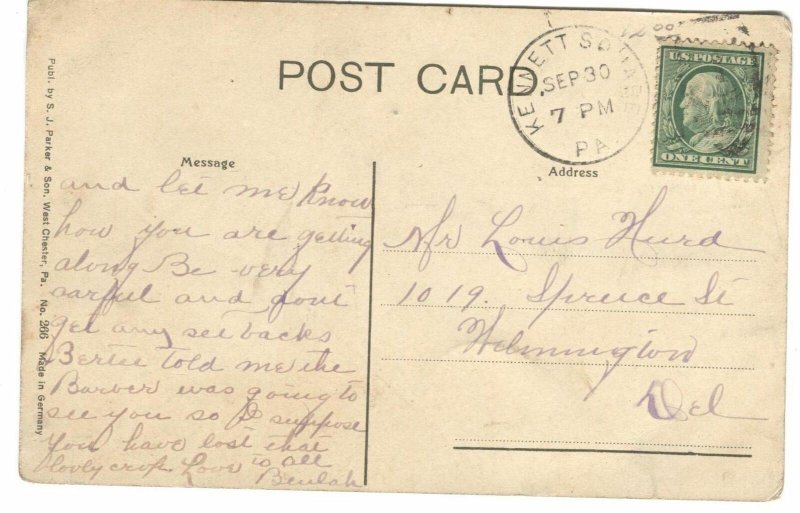 POST CARD
KENNETT SQUARE
SEP 30
7 PM
PA.
U.S. POSTAGE
ONE CENT
Message
Address
and let me know
how you are getting
along Be very
carful and dont
get any set backs
Bertie told me the
Barber was going to
see you so I suppose
you have lost that
lovly crop Love to all
Beulah
Mr Louis Hurd
1019. Spruce St
Wilmington
Del
Publ. by S. J. Parker & Son. West Chester, Pa. No. 266 Made in Germany